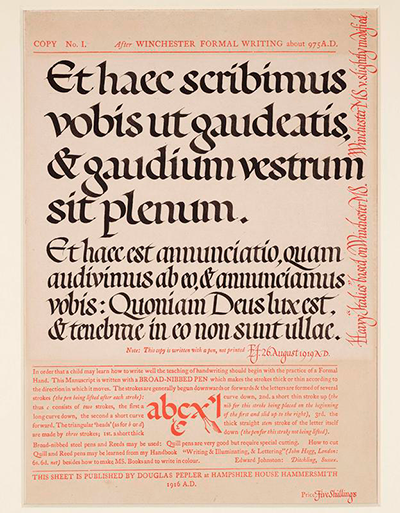 COPY No. 1. After WINCHESTER FORMAL WRITING about 975 A.D.
Et haec scribimus
vobis ut gaudeatis,
& gaudium vestrum
sit plenum.
Et haec est annunciatio, quam
audivimus ab eo, & annunciamus
vobis: Quoniam Deus lux est.
& tenebrae in eo non sunt ullae.
Note: This copy is written with a pen, not printed EJ. 26 August 1919 A.D.
Heavy "Italics" based on Winchester MS. Winchester MS. v. slightly modified
In order that a child may learn how to write well the teaching of handwriting should begin with the practice of a Formal
Hand. This Manuscript is written with a BROAD-NIBBED PEN which makes the strokes thick or thin according to
the direction in which it moves. The strokes are generally begun downwards or forwards & the letters are formed of several
strokes (the pen being lifted after each stroke):
thus c consists of two strokes, the first a
long curve down, the second a short curve
forward. The triangular 'heads' (as for b or d)
are made by three strokes; 1st, a short thick
abcx
curve down, 2nd, a short thin stroke up (the
nib for this stroke being placed on the beginning
of the first and slid up to the right), 3rd, the
thick straight stem stroke of the letter itself
down (the pen for this strok not being lifted).
Broad-nibbed steel pens and Reeds may be used: Quill pens are very good but require special cutting. How to cut
Quill and Reed pens may be learned from my Handbook "Writing & Illuminating, & Lettering" (John Hogg, London:
6s. 6d. net) besides how to make MS. Books and to write in colour. Edward Johnston: Ditchling, Sussex.
THIS SHEET IS PUBLISHED BY DOUGLAS PEPLER at HAMPSHIRE HOUSE HAMMERSMITH
1916 A.D.
Price Five Shillings